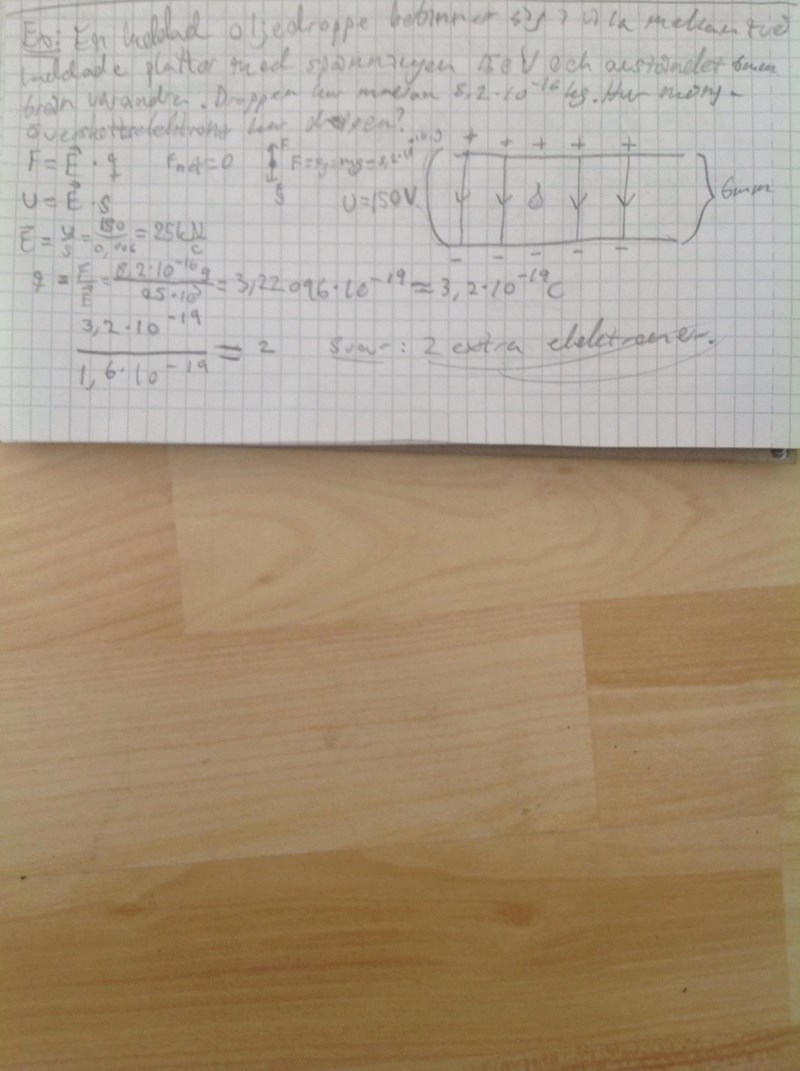 Ex: En laddad oljedroppe befinner sig i vila mellan två
laddade plattor med spänningen 150 V och avståndet 6mm
från varandra. Droppen har massan 8,2·10⁻¹⁶ kg. Hur mång-
överskottselektroner har droppen?
F = E⃗ · q F = 0 F
U = E⃗ · s U=150V + + + + + 6mm
E⃗ = U/s = 150/0,006 = 25kN/C - - - - -
q = F/E⃗ = 8,2·10⁻¹⁶g/25·10³ = 3,22096·10⁻¹⁹ ≈ 3,2·10⁻¹⁹C
3,2·10⁻¹⁹/1,6·10⁻¹⁹ = 2 Svar: 2 extra elektroner.